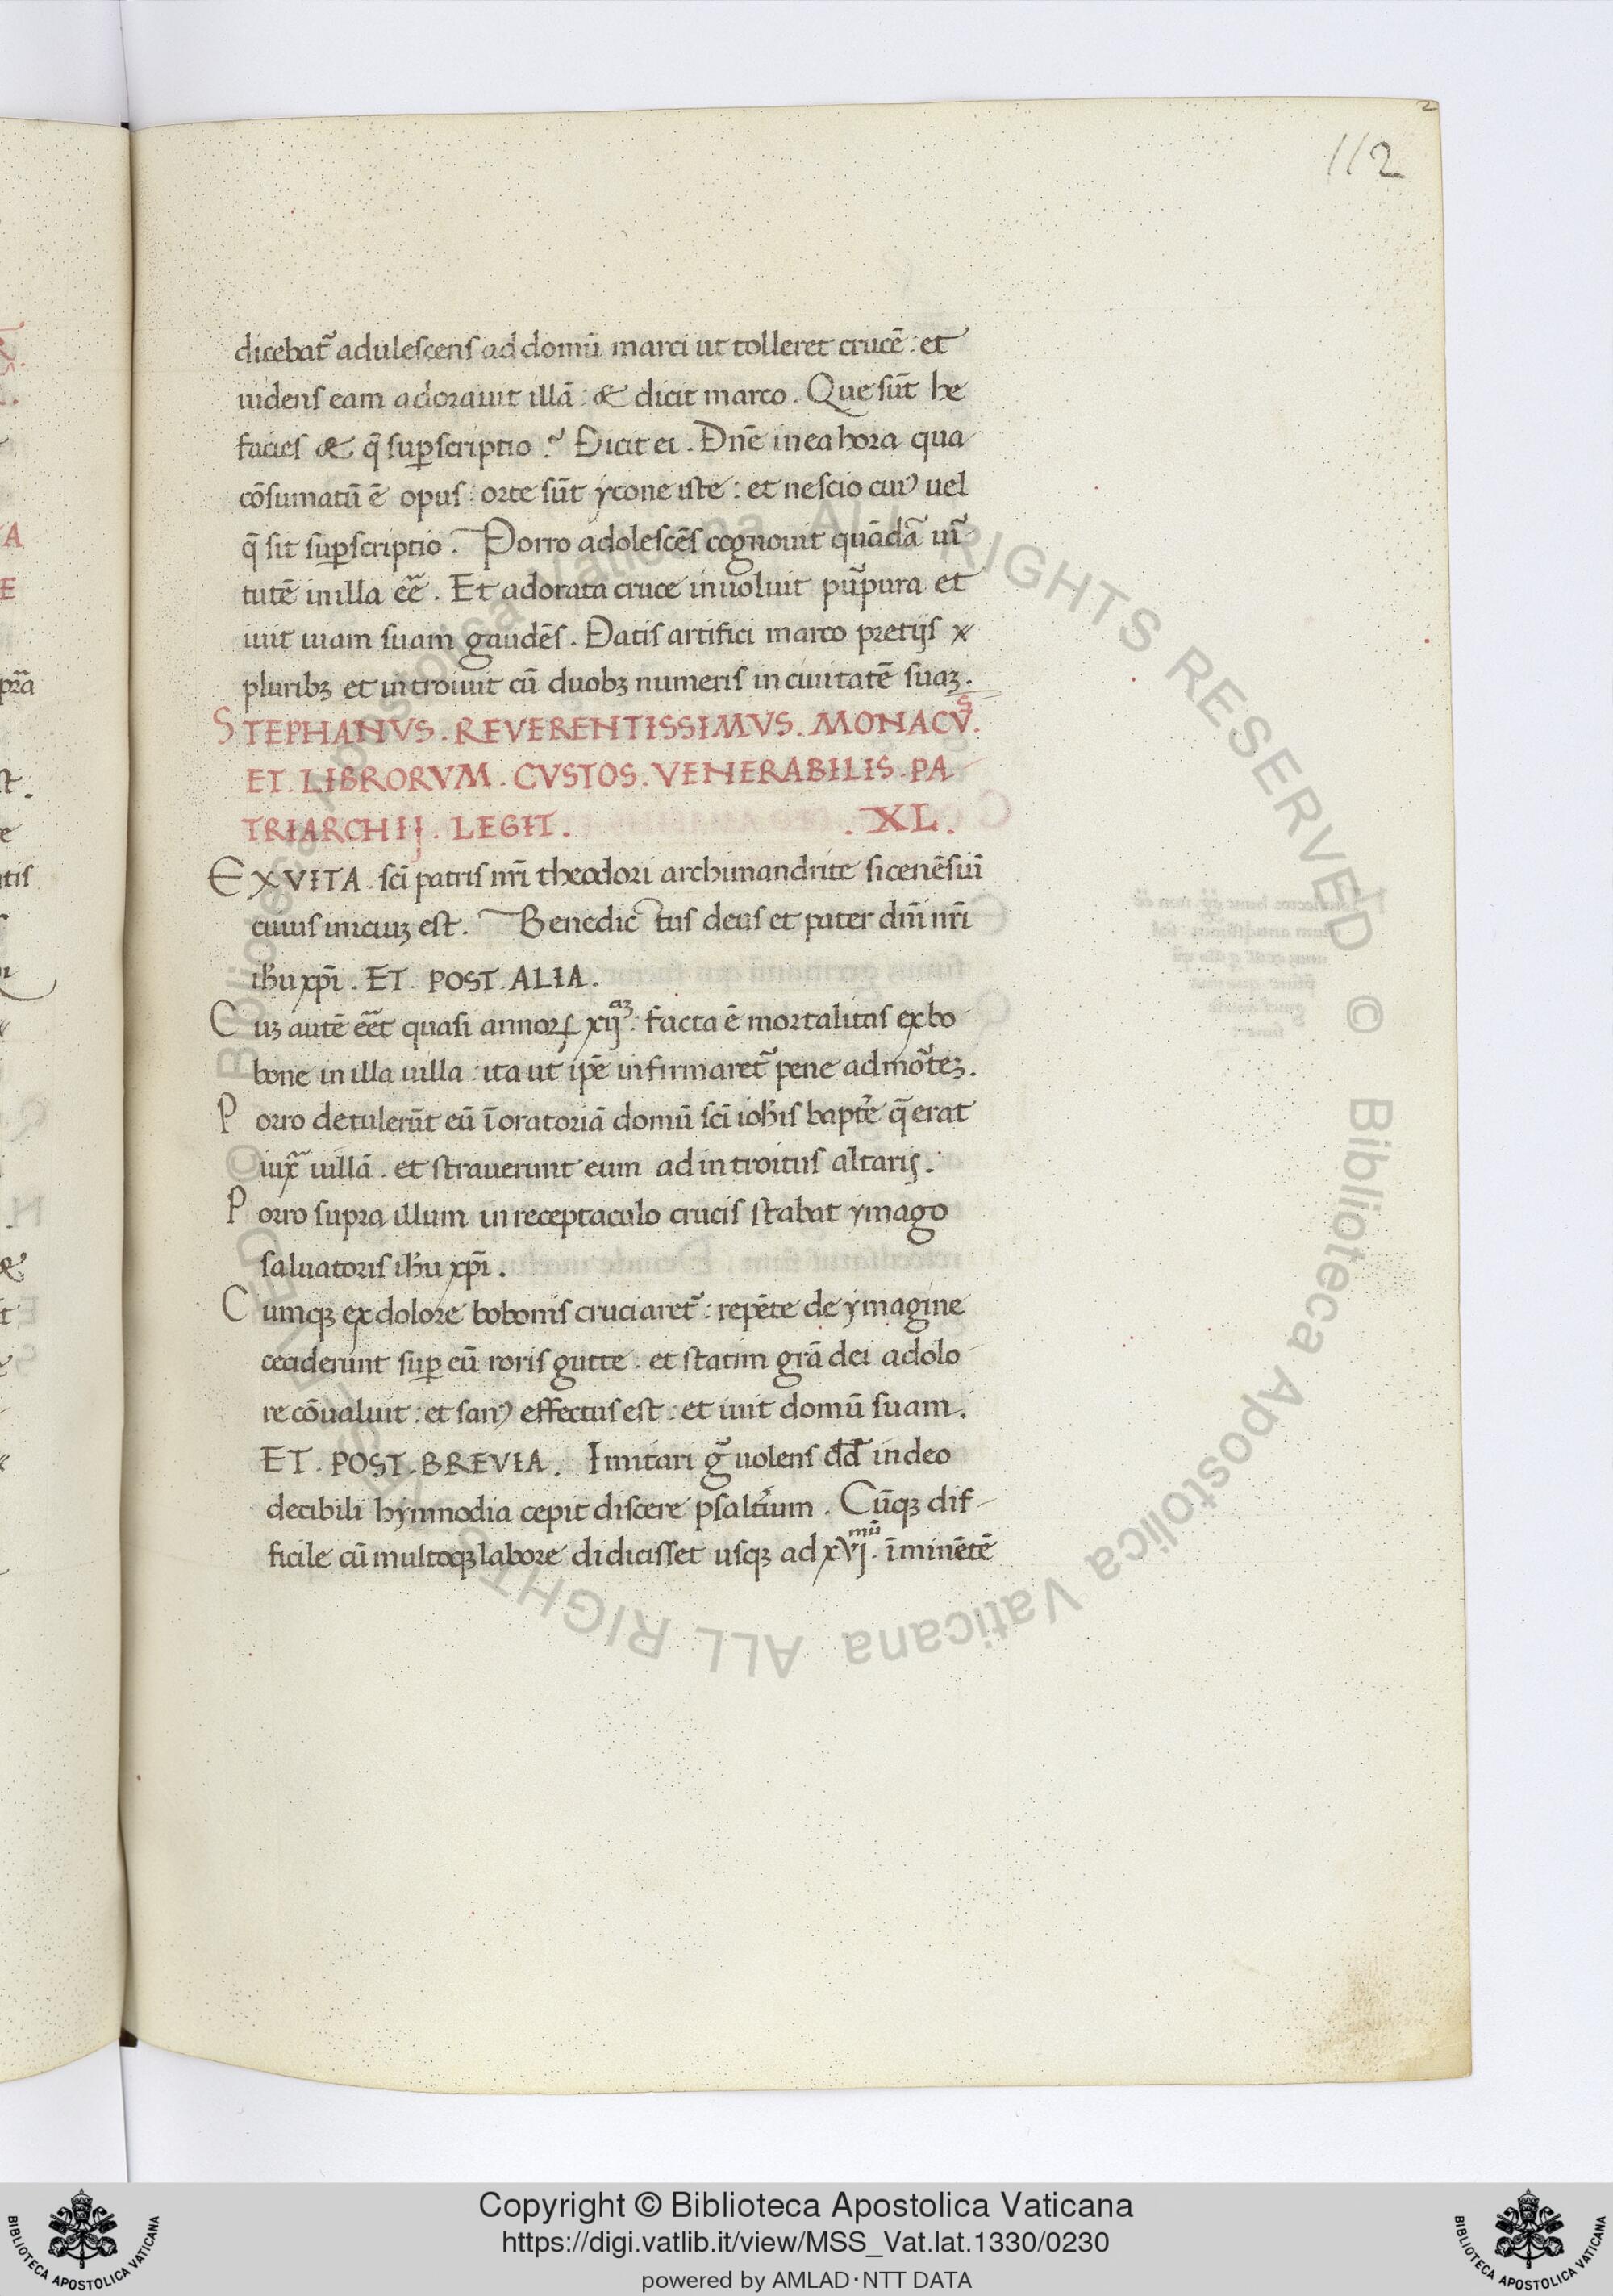 112
dicebat᷑ adulescens ad domū marci ut tolleret crucē : et
uidens eam adorauit illā : & dicit marco . Que sūt he
facies & q̄ suꝑscriptio ? Dicit ei . Dn̄e in ea hora qua
cōsumatū ē opus : orte sūt ycone iste : et nescio cuiꝰ uel
q̄ sit suꝑscriptio . Porro adolescēs cognouit quādā uir᷑
tutē in illa eē . Et adorata cruce inuoluit pur᷑pura et
iuit uiam suam gaudēs . Datis artifici marco pretijs
pluribꝫ et introiuit cū duobꝫ numeris in ciuitatē suaꝫ .
STEPHANVS . REVERENTISSIMVS . MONACVS .
ET . LIBRORVM . CVSTOS . VENERABILIS . PA
TRIARCHIJ . LEGIT . . XL .
EX VITA . sc̄i patris nr̄i theodori archimandrite sicenēsui
cuius iniciuꝫ est . Benedictus deus et pater dn̄i nr̄i
ihu xp̄i . ET . POST . ALIA .
Cuꝫ autē eēt quasi annoꝝ xij : facta ē mortalitas ex bo
bone in illa uilla : ita ut ip̄e infirmaret᷑ pene ad mor᷑teꝫ .
Porro detulerūt eū ī oratoriā domū sc̄i ioħis bapt̄e q̄ erat
iuxᷓ uillā . et strauerunt eum ad introitus altaris .
Porro supra illum in receptaculo crucis stabat ymago
saluatoris ihu xp̄i .
Cumqꝫ ex dolore bobonis cruciaret᷑ : repēte de ymagine
ceciderunt suꝑ eū roris gutte . et statim grā dei a dolo
re cōualuit : et sanꝰ effectus est : et iuit domū suam .
ET . POST . BREVIA . Imitari g᷑ uolens dd̄ in deo
decibili hymnodia cepit discere psalt̄ium . Cūqꝫ dif-
ficile cū multoqꝫ labore didicisset usqꝫ ad xvjmū . īminētē
Copyright © Biblioteca Apostolica Vaticana
https://digi.vatlib.it/view/MSS_Vat.lat.1330/0230
powered by AMLAD·NTT DATA